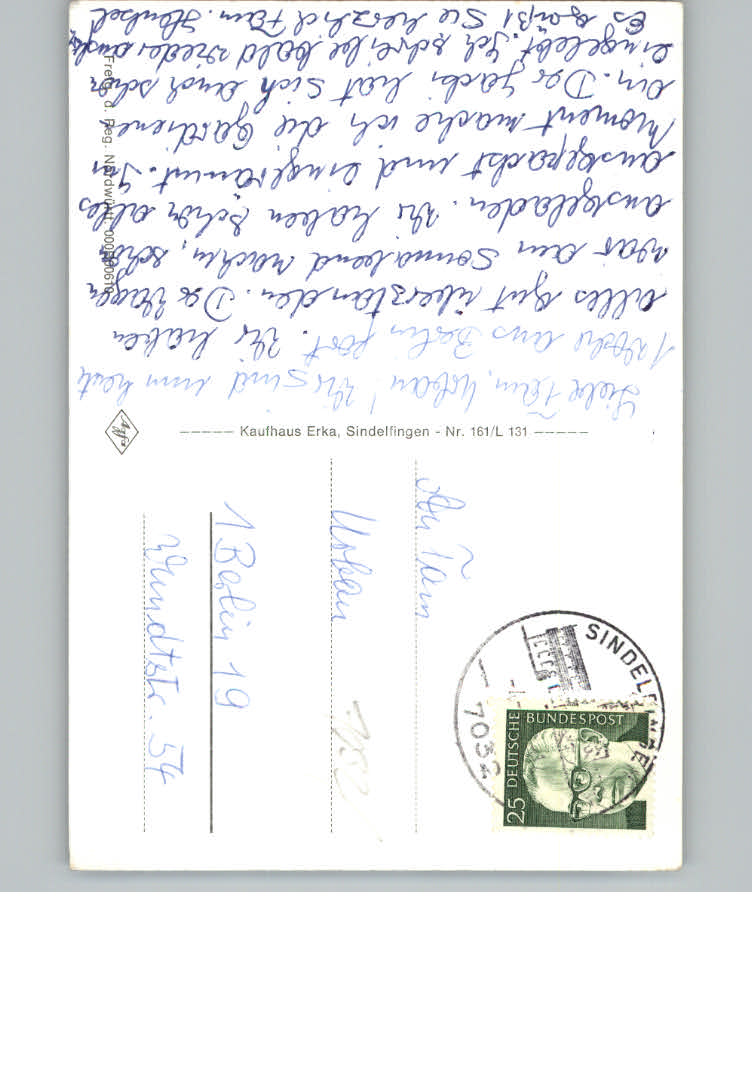 Liebe Fam. Urban! Wir sind nun heute
1 Woche aus Berlin fort. Wir haben
alles gut überstanden. Der Wagen
war am Sonnabend nachm. schon
ausgeladen. Wir haben schon alles
ausgepackt und eingeräumt. Im
Moment mache ich die Gardienen
an. Der Jacki hat sich auch schon
eingelebt. Ich schreibe bald wieder
Es grüßt Sie herzlich Fam.
Agfa
Kaufhaus Erka, Sindelfingen - Nr. 161/L 131
Freig. d. Reg. Nordwürtt.
An Fam
Urban
1 Berlin 19
Wundtstr. 54
SINDELFINGEN
7032
DEUTSCHE BUNDESPOST
25